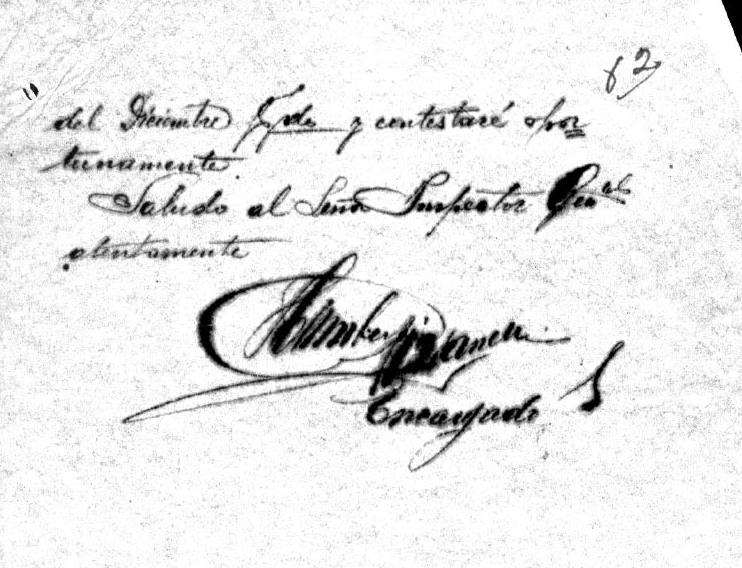 62
del Diciembre ppdo y contestaré opor
tunamente.
Saludo al Señor Inspector Gral
atentamente
Encargado